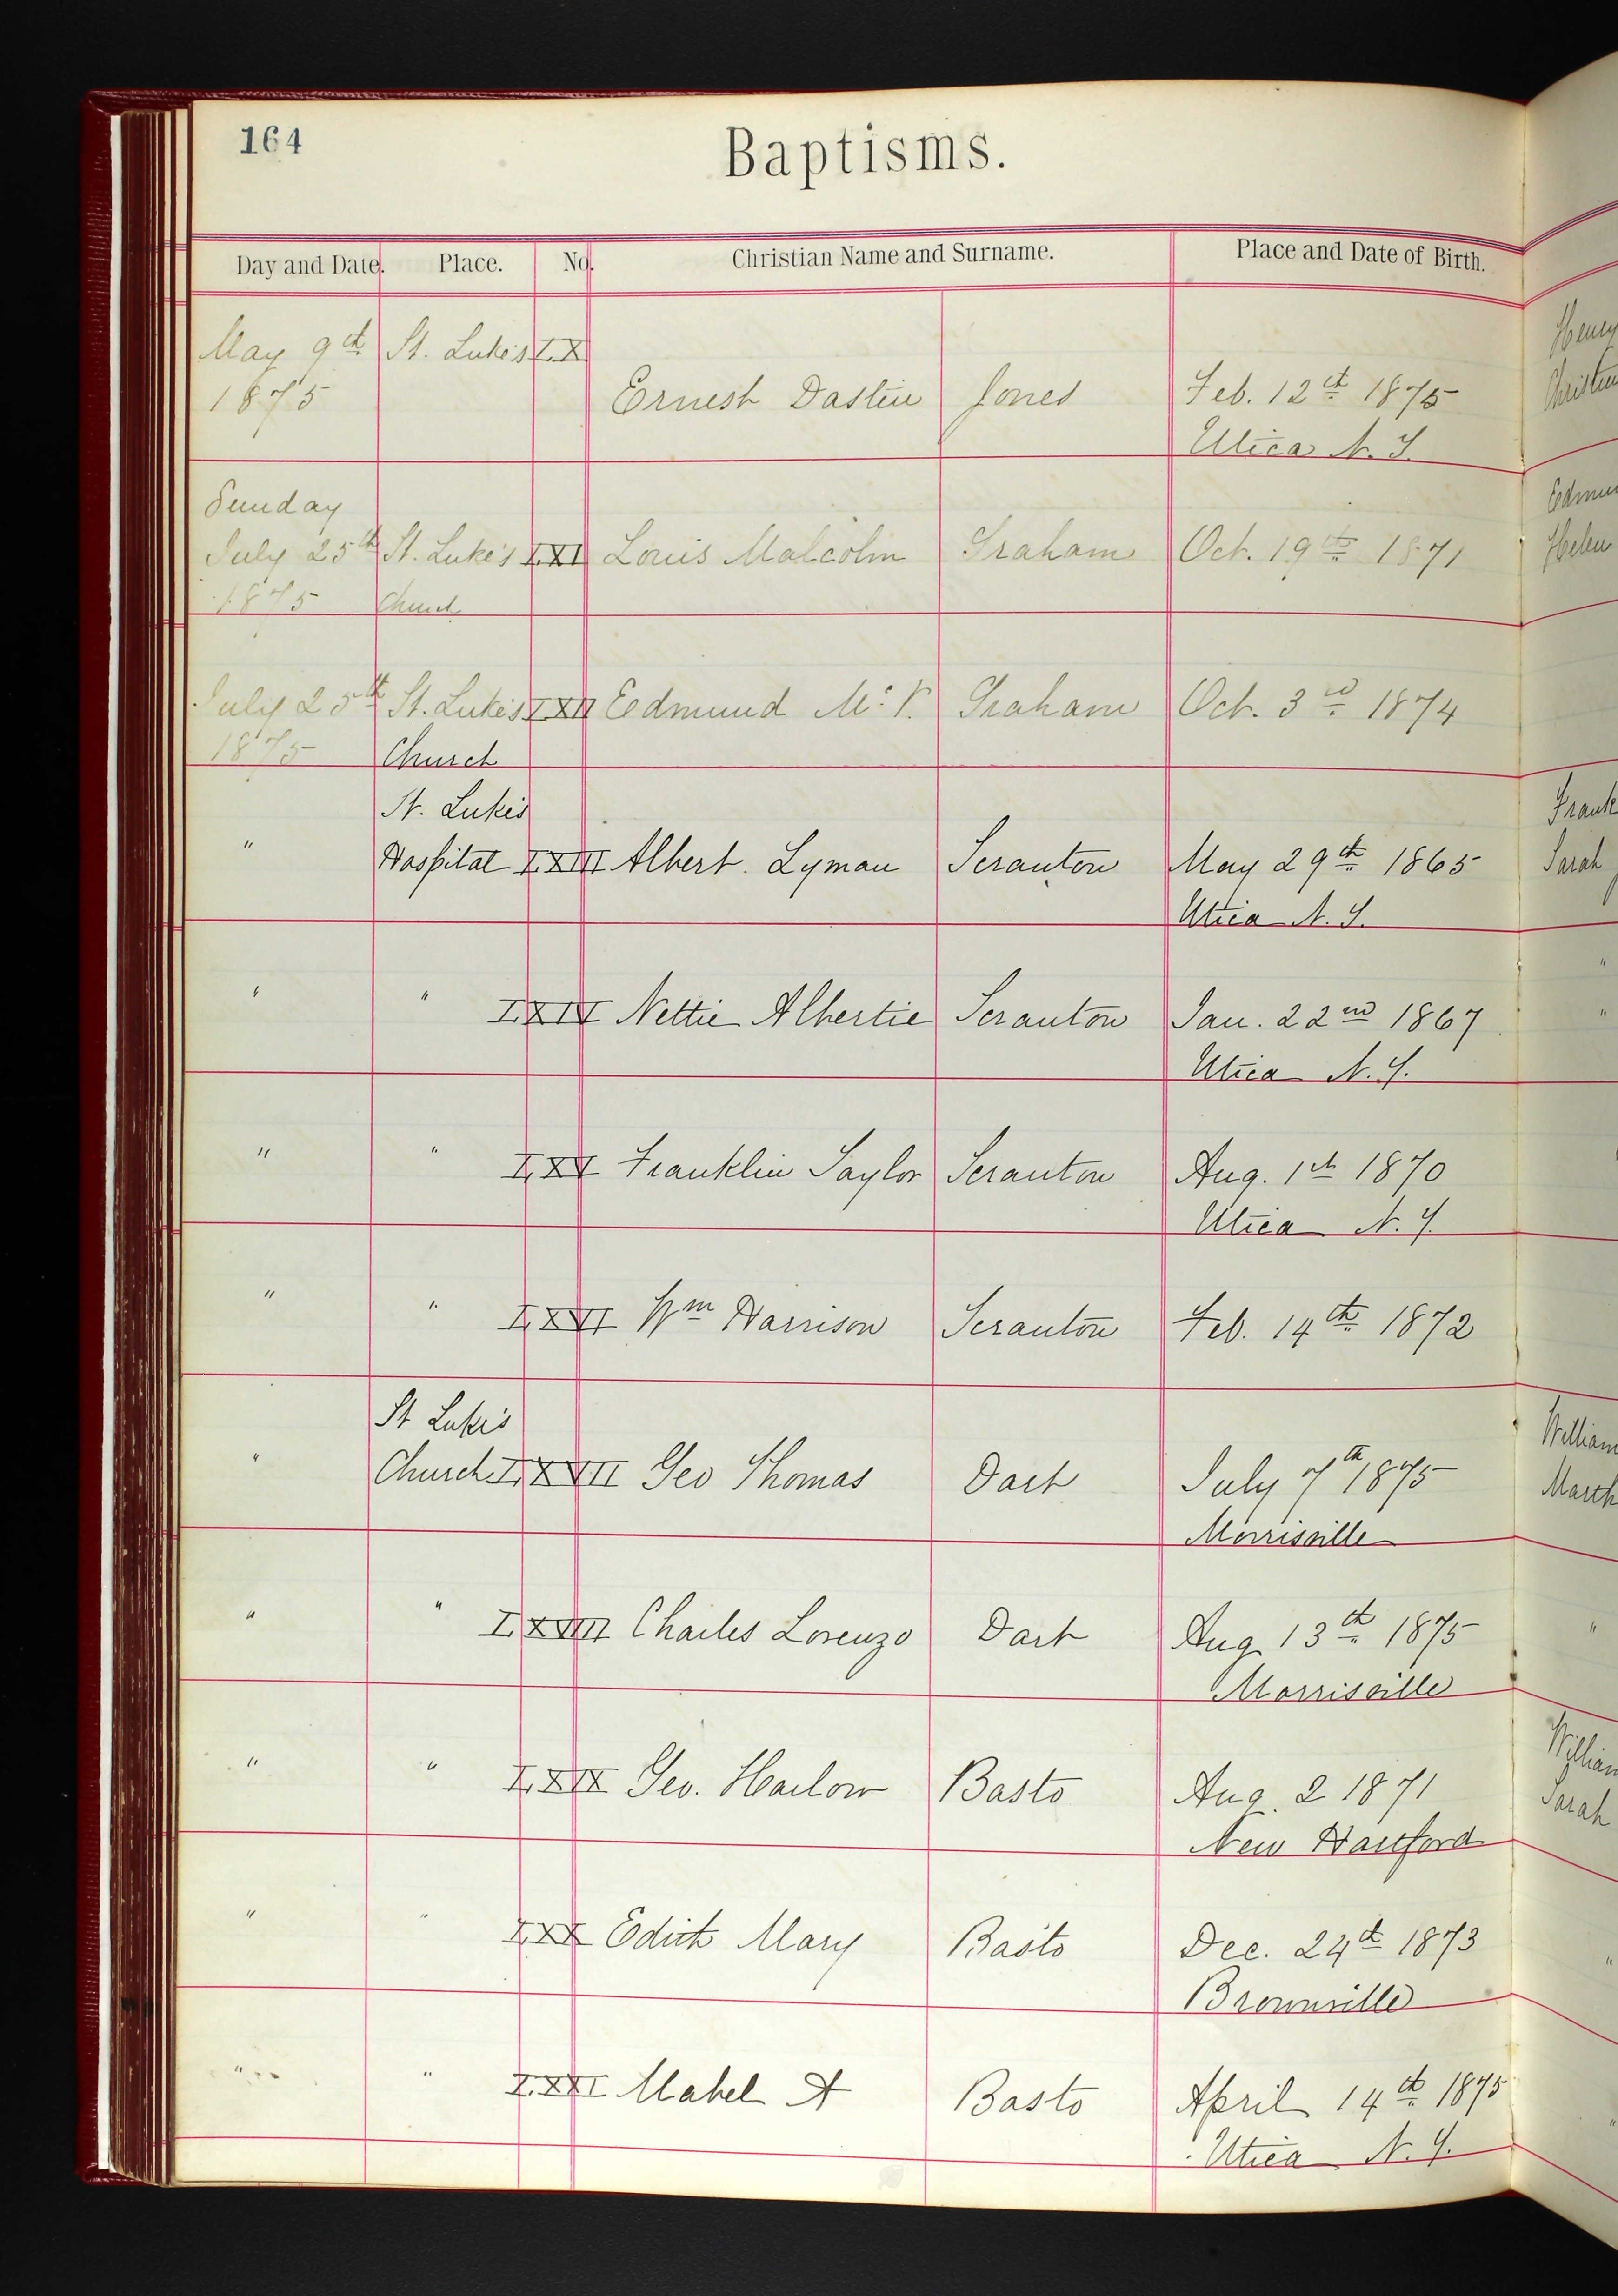 164
Baptisms.
Day and Date. Place. No. Christian Name and Surname. Place and Date of Birth.
May 9th St. Luke's LX
1875 Ernest Dastin Jones Feb. 12th 1875
Utica N. Y.
Henry
Christin
Sunday
July 25th St. Luke's LXI Louis Malcolm Graham Oct. 19th 1871
1875 Church
Edmun
Helen
July 25th St. Luke's LXII Eedmund Mc. V. Graham Oct. 3rd 1874
1875 Church
St. Luke's
" Hospital LXIII Albert. Lyman Scranton May 29th 1865
Utica N. Y.
Frank
Sarah
" " LXIV Nettie Albertie Scranton Jan. 22nd 1867
Utica N. Y.
" "
" " LXV Franklin Taylor Scranton Aug. 1st 1870
Utica N. Y.
" " LXVI Wm Harrison Scranton Feb. 14th 1872
St Luke's
" Church LXVII Geo Thomas Dart July 7th 1875
Morrisville
William
Marth
" " LXVIII Charles Lorenzo Dart Aug. 13th 1875
Morrisville
"
" " LXIX Geo. Harlow Basto Aug. 2 1871
New Hartford
William
Sarah
" " LXX Edith Mary Basto Dec. 24th 1873
Brownville
"
" " LXXI Mabel A Basto April 14th 1875
Utica N. Y.
"